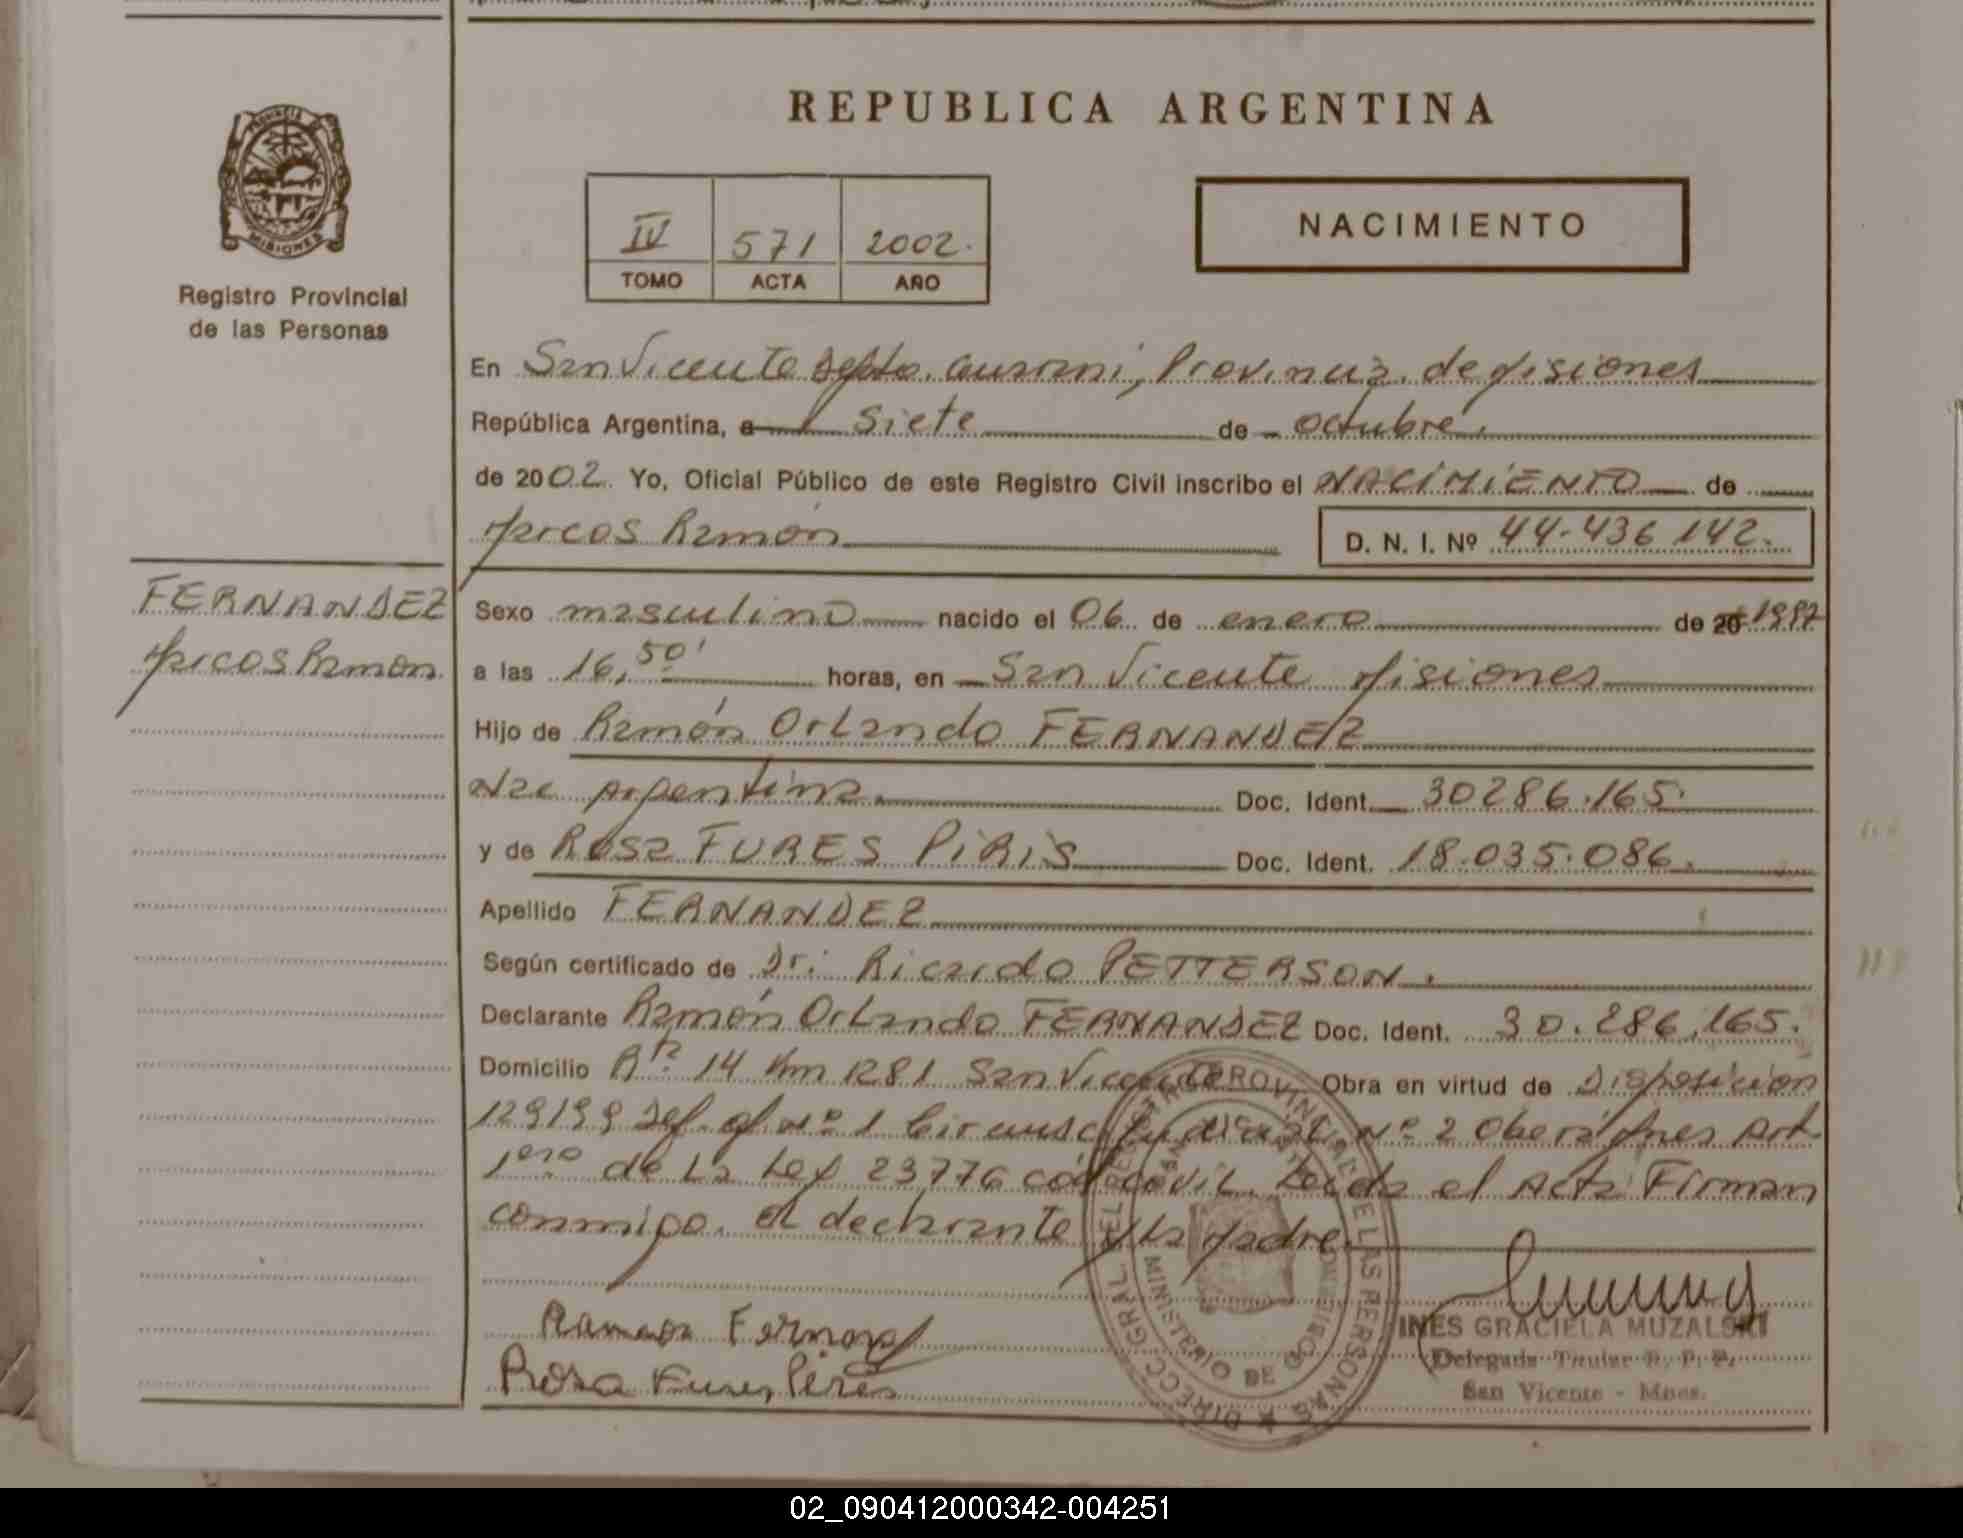 REPUBLICA ARGENTINA
PROVINCIA DE MISIONES
Registro Provincial
de las Personas
IV 571 2002.
TOMO ACTA AÑO
NACIMIENTO
En San Vicente depto. Guarani, Provincia de Misiones
República Argentina, a siete de octubre.
de 2002. Yo, Oficial Público de este Registro Civil inscribo el NACIMIENTO de
Marcos Ramón D. N. I. Nº 44.436 142.
FERNANDEZ
Marcos Ramon
Sexo masculino nacido el 06 de enero de 20
a las 16,50' horas, en San Vicente Misiones
Hijo de Ramón Orlando FERNANDEZ
Nac Argentina. Doc. Ident. 30286.165.
y de Rosa FURES PiRiS Doc. Ident. 18.035.086.
Apellido FERNANDEZ
Según certificado de Dr. Ricardo PETTERSON.
Declarante Ramón Orlando FERNANDEZ Doc. Ident. 30.286.165.
Domicilio Rta. 14 Km 1281 San Vicente Obra en virtud de Disposicion
129199 Def. of. Nº 1 Circunsc. Judicial Nº 2 Obera Mnes Art.
1ero de La Ley 23776 cod civil. Leida el Acta Firman
conmigo. el declarante y La Madre.
Ramon Fernand
Rosa Fures Piris
DIRECC. GRAL. DEL REGISTRO PROVINCIAL DE LAS PERSONAS
MINISTERIO DE GOBIERNO
INES GRACIELA MUZALSKI
Delegada Titular R. P. P.
San Vicente - Mnes.
02_090412000342-004251